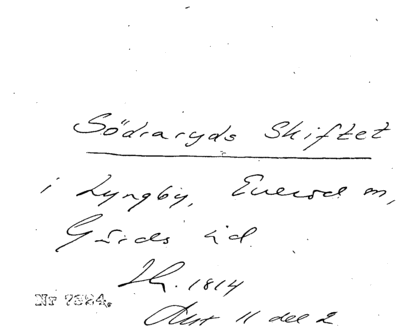 Södraryds Skiftet
i Lyngby, Everöd m,
Gärds hd.
1814
Nr 7324.
Akt 11 del 2